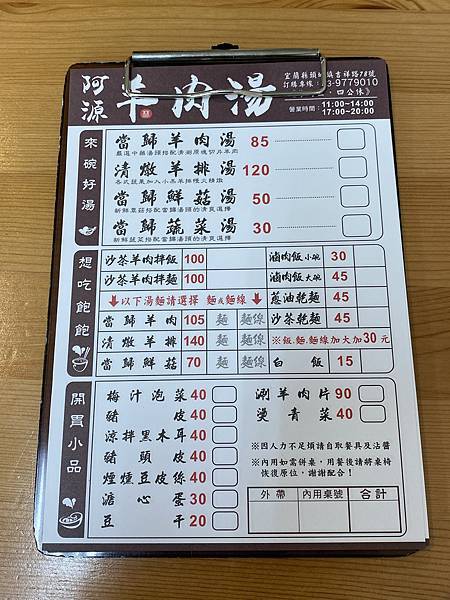 阿源 羊肉湯
宜蘭縣頭城鎮吉祥路78號
訂購專線
3-9779010
四公休》
營業時間：11:00~14:00
17:00~20:00
來碗好湯
當歸羊肉湯 85
清燉羊排湯 120
當歸鮮菇湯 50
當歸蔬菜湯 30
想吃飽飽
沙茶羊肉拌飯 100 滷肉飯小碗 30
沙茶羊肉拌麵 100 滷肉飯大碗 45
以下湯麵請選擇 麵或麵線 蔥油乾麵 45
當歸羊肉 105 麵 麵線 沙茶乾麵 45
清燉羊排 140 麵 麵線 ※飯.麵.麵線加大加30元
當歸鮮菇 70 麵 麵線 白飯 15
開胃小品
梅汁泡菜 40 涮羊肉片 90
豬皮 40 燙青菜 40
涼拌黑木耳 40
豬頭皮 40
煙燻豆皮絲 40
溏心蛋 30
豆干 20
※因人力不足煩請自取餐具及沾醬
※內用如需併桌，用餐後請將桌椅
恢復原位，謝謝配合！
外帶 內用桌號 合計